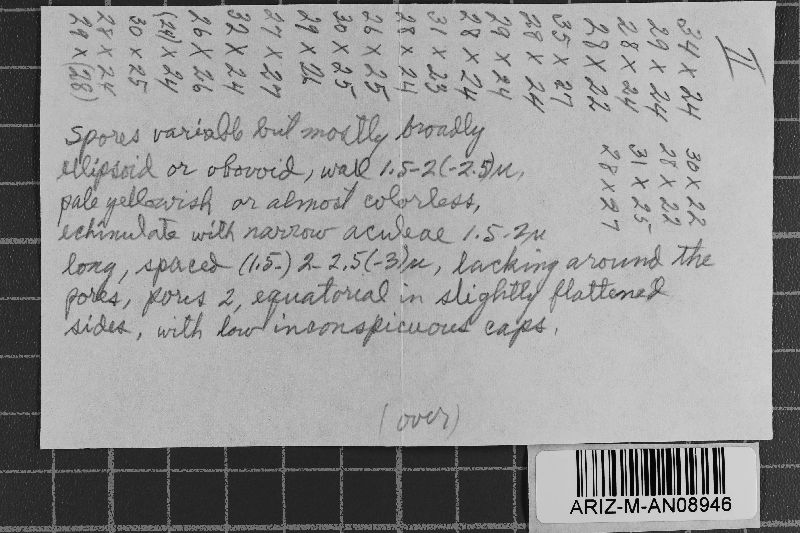 II
34 X 24
29 X 24
28 X 24
28 X 22
35 X 27
28 X 24
29 X 24
28 X 24
31 X 23
28 X 24
26 X 25
30 X 25
29 X 26
27 X 27
32 X 24
26 X 26
X 24
30 X 25
28 X 24
29 X (28)
30 X 22
28 X 22
31 X 25
28 X 27
Spores variable but mostly broadly
ellipsoid or obovoid, wall 1.5-2(-2.5)µ,
pale yellowish or almost colorless,
echinulate with narrow aculeae 1.5-2µ
long, spaced (1.5-) 2-2.5(-3)µ, lacking around the
pores, pores 2, equatorial in slightly flattened
sides, with low inconspicuous caps.
(over)
ARIZ-M-AN08946